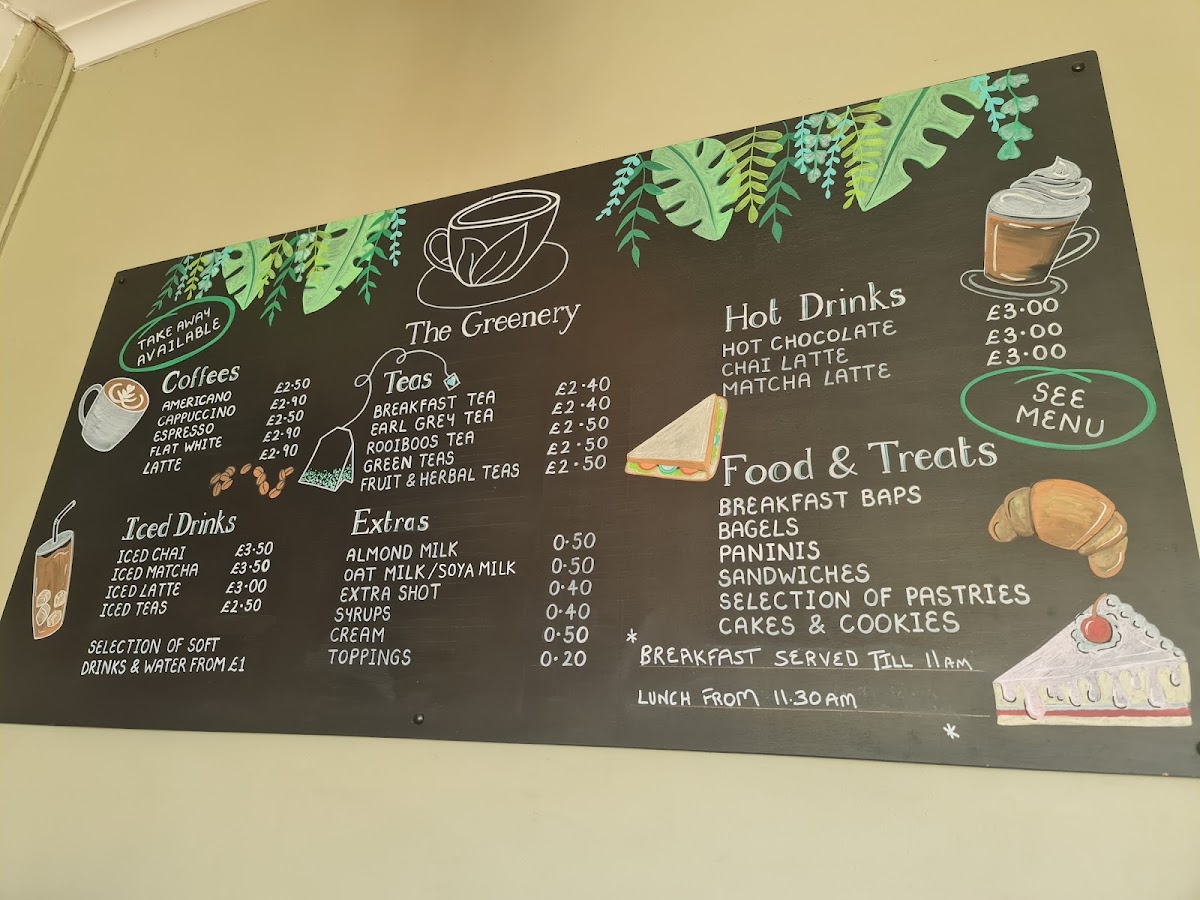 The Greenery
TAKE AWAY
AVAILABLE
Coffees
AMERICANO £2·50
CAPPUCCINO £2·90
ESPRESSO £2·50
FLAT WHITE £2·90
LATTE £2·90
Iced Drinks
ICED CHAI £3·50
ICED MATCHA £3·50
ICED LATTE £3·00
ICED TEAS £2·50
SELECTION OF SOFT
DRINKS & WATER FROM £1
Teas
BREAKFAST TEA £2·40
EARL GREY TEA £2·40
ROOIBOOS TEA £2·50
GREEN TEAS £2·50
FRUIT & HERBAL TEAS £2·50
Extras
ALMOND MILK 0·50
OAT MILK/SOYA MILK 0·50
EXTRA SHOT 0·40
SYRUPS 0·40
CREAM 0·50
TOPPINGS 0·20
Hot Drinks
HOT CHOCOLATE £3·00
CHAI LATTE £3·00
MATCHA LATTE £3·00
SEE
MENU
Food & Treats
BREAKFAST BAPS
BAGELS
PANINIS
SANDWICHES
SELECTION OF PASTRIES
CAKES & COOKIES
* BREAKFAST SERVED TILL 11AM
LUNCH FROM 11.30AM *